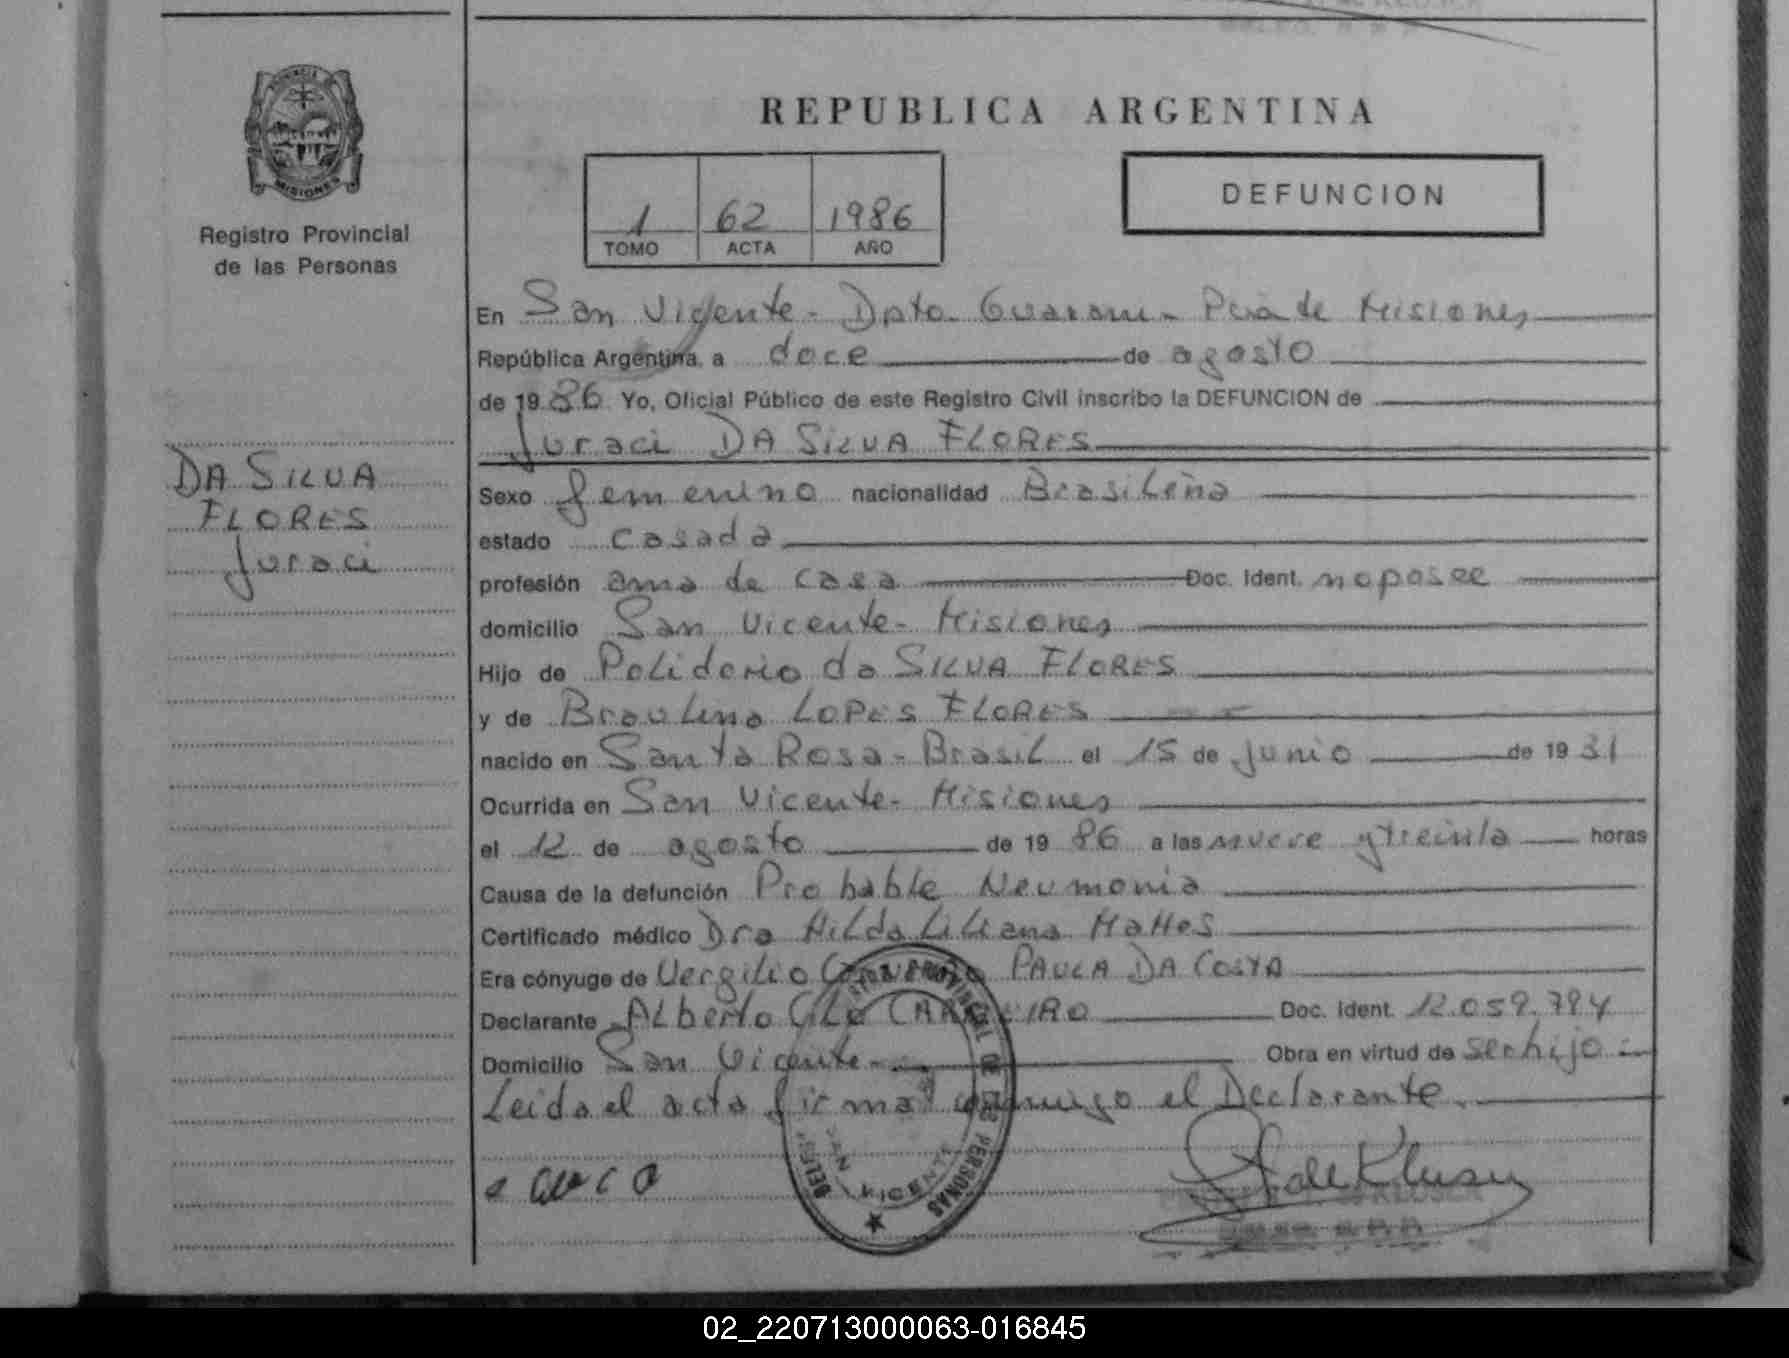 REPUBLICA ARGENTINA
PROVINCIA DE
MISIONES
Registro Provincial
de las Personas
1 62 1986
TOMO ACTA AÑO
DEFUNCION
En San Vicente - Dpto. Guarani - Pcia de Misiones
República Argentina, a doce de agosto
de 1986 Yo, Oficial Público de este Registro Civil inscribo la DEFUNCION de
Juraci DA SILVA FLORES
DA SILVA
FLORES
Juraci
Sexo femenino nacionalidad Brasileña
estado casada
profesión ama de casa Doc. Ident. no posee
domicilio San Vicente - Misiones
Hijo de Polidorio da SILVA FLORES
y de Braulina LOPES FLORES
nacido en Santa Rosa - Brasil el 15 de junio de 1931
Ocurrida en San Vicente - Misiones
el 12 de agosto de 1986 a las nueve y treinta horas
Causa de la defunción Probable Neumonia
Certificado médico Dra Hilda Liliana Mattes
Era cónyuge de Vergilio PAULA DA COSTA
Declarante Alberto Doc. Ident. 12.059.794
Domicilio San Vicente - Obra en virtud de ser hijo
Leida el acta firma conmigo el Declarante.
PROVINCIAL DE LAS PERSONAS
SAN VICENTE
02_220713000063-016845